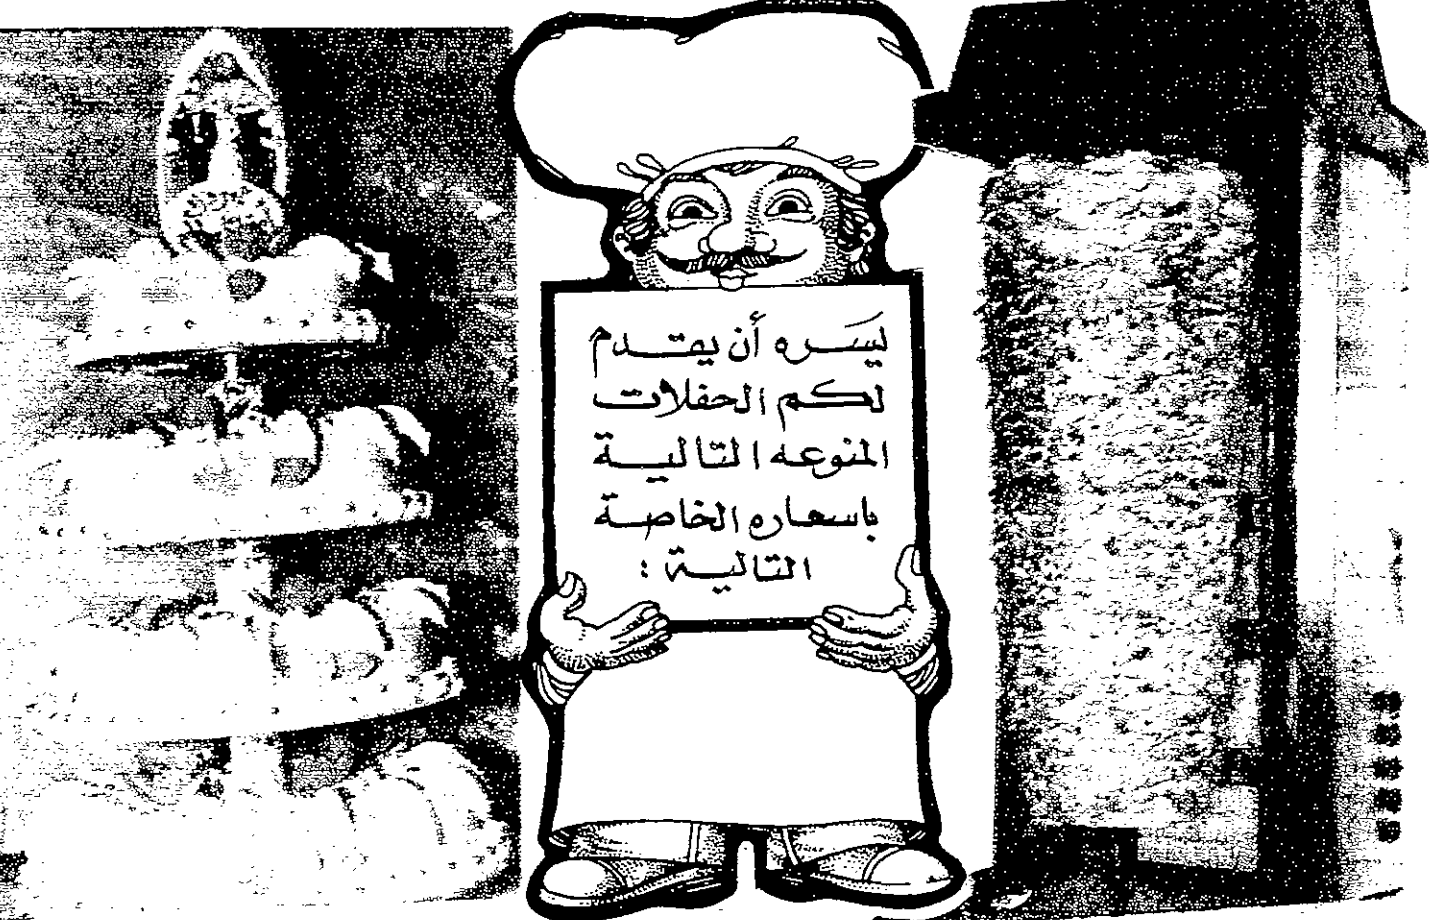 ليسره أن يقدم
لكم الحفلات
المنوعه التالية
باسعاره الخاصة
التالية :